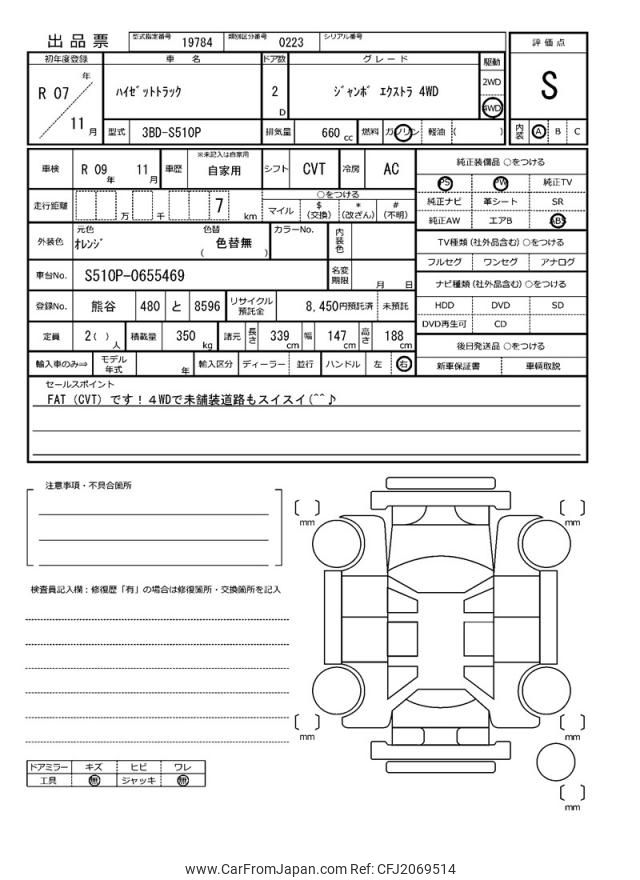 出品票 型式指定番号 19784 類別区分番号 0223 シリアル番号
初年度登録 車名 ドア数 グレード 駆動 評価点
R 07 年 11 月 ﾊｲｾﾞｯﾄﾄﾗｯｸ 2 D ｼﾞｬﾝﾎﾞ ｴｸｽﾄﾗ 4WD 2WD 4WD S
型式 3BD-S510P 排気量 660 cc 燃料 ガソリン 軽油 ( ) 内装 A B C
車検 R 09 年 11 月 車歴 ※未記入は自家用 自家用 シフト CVT 冷房 AC
純正装備品 ○をつける
PS PW 純正TV
純正ナビ 革シート SR
純正AW エアB ABS
走行距離 万 千 7 km ○をつける
マイル $ (交換) * (改ざん) # (不明)
外装色 元色 ｵﾚﾝｼﾞ 色替 色替無 ( ) カラーNo. 内装色
TV種類 (社外品含む) ○をつける
フルセグ ワンセグ アナログ
車台No. S510P-0655469 名変期限 月 日
ナビ種類 (社外品含む) ○をつける
HDD DVD SD
DVD再生可 CD
登録No. 熊谷 480 と 8596 リサイクル預託金 8,450円預託済 未預託
定員 2( ) 人 積載量 350 kg 諸元 長さ 339 cm 幅 147 cm 高さ 188 cm
後日発送品 ○をつける
新車保証書 車輌取説
輸入車のみ⇒ モデル年式 年 輸入区分 ディーラー 並行 ハンドル 左 右
セールスポイント
FAT (CVT) です！４WDで未舗装道路もスイスイ(^^♪
注意事項・不具合箇所
mm
mm
検査員記入欄：修復歴「有」の場合は修復箇所・交換箇所を記入
mm
mm
ドアミラー キズ ヒビ ワレ
工具 無 ジャッキ 無
mm
www.CarFromJapan.com Ref: CFJ2069514